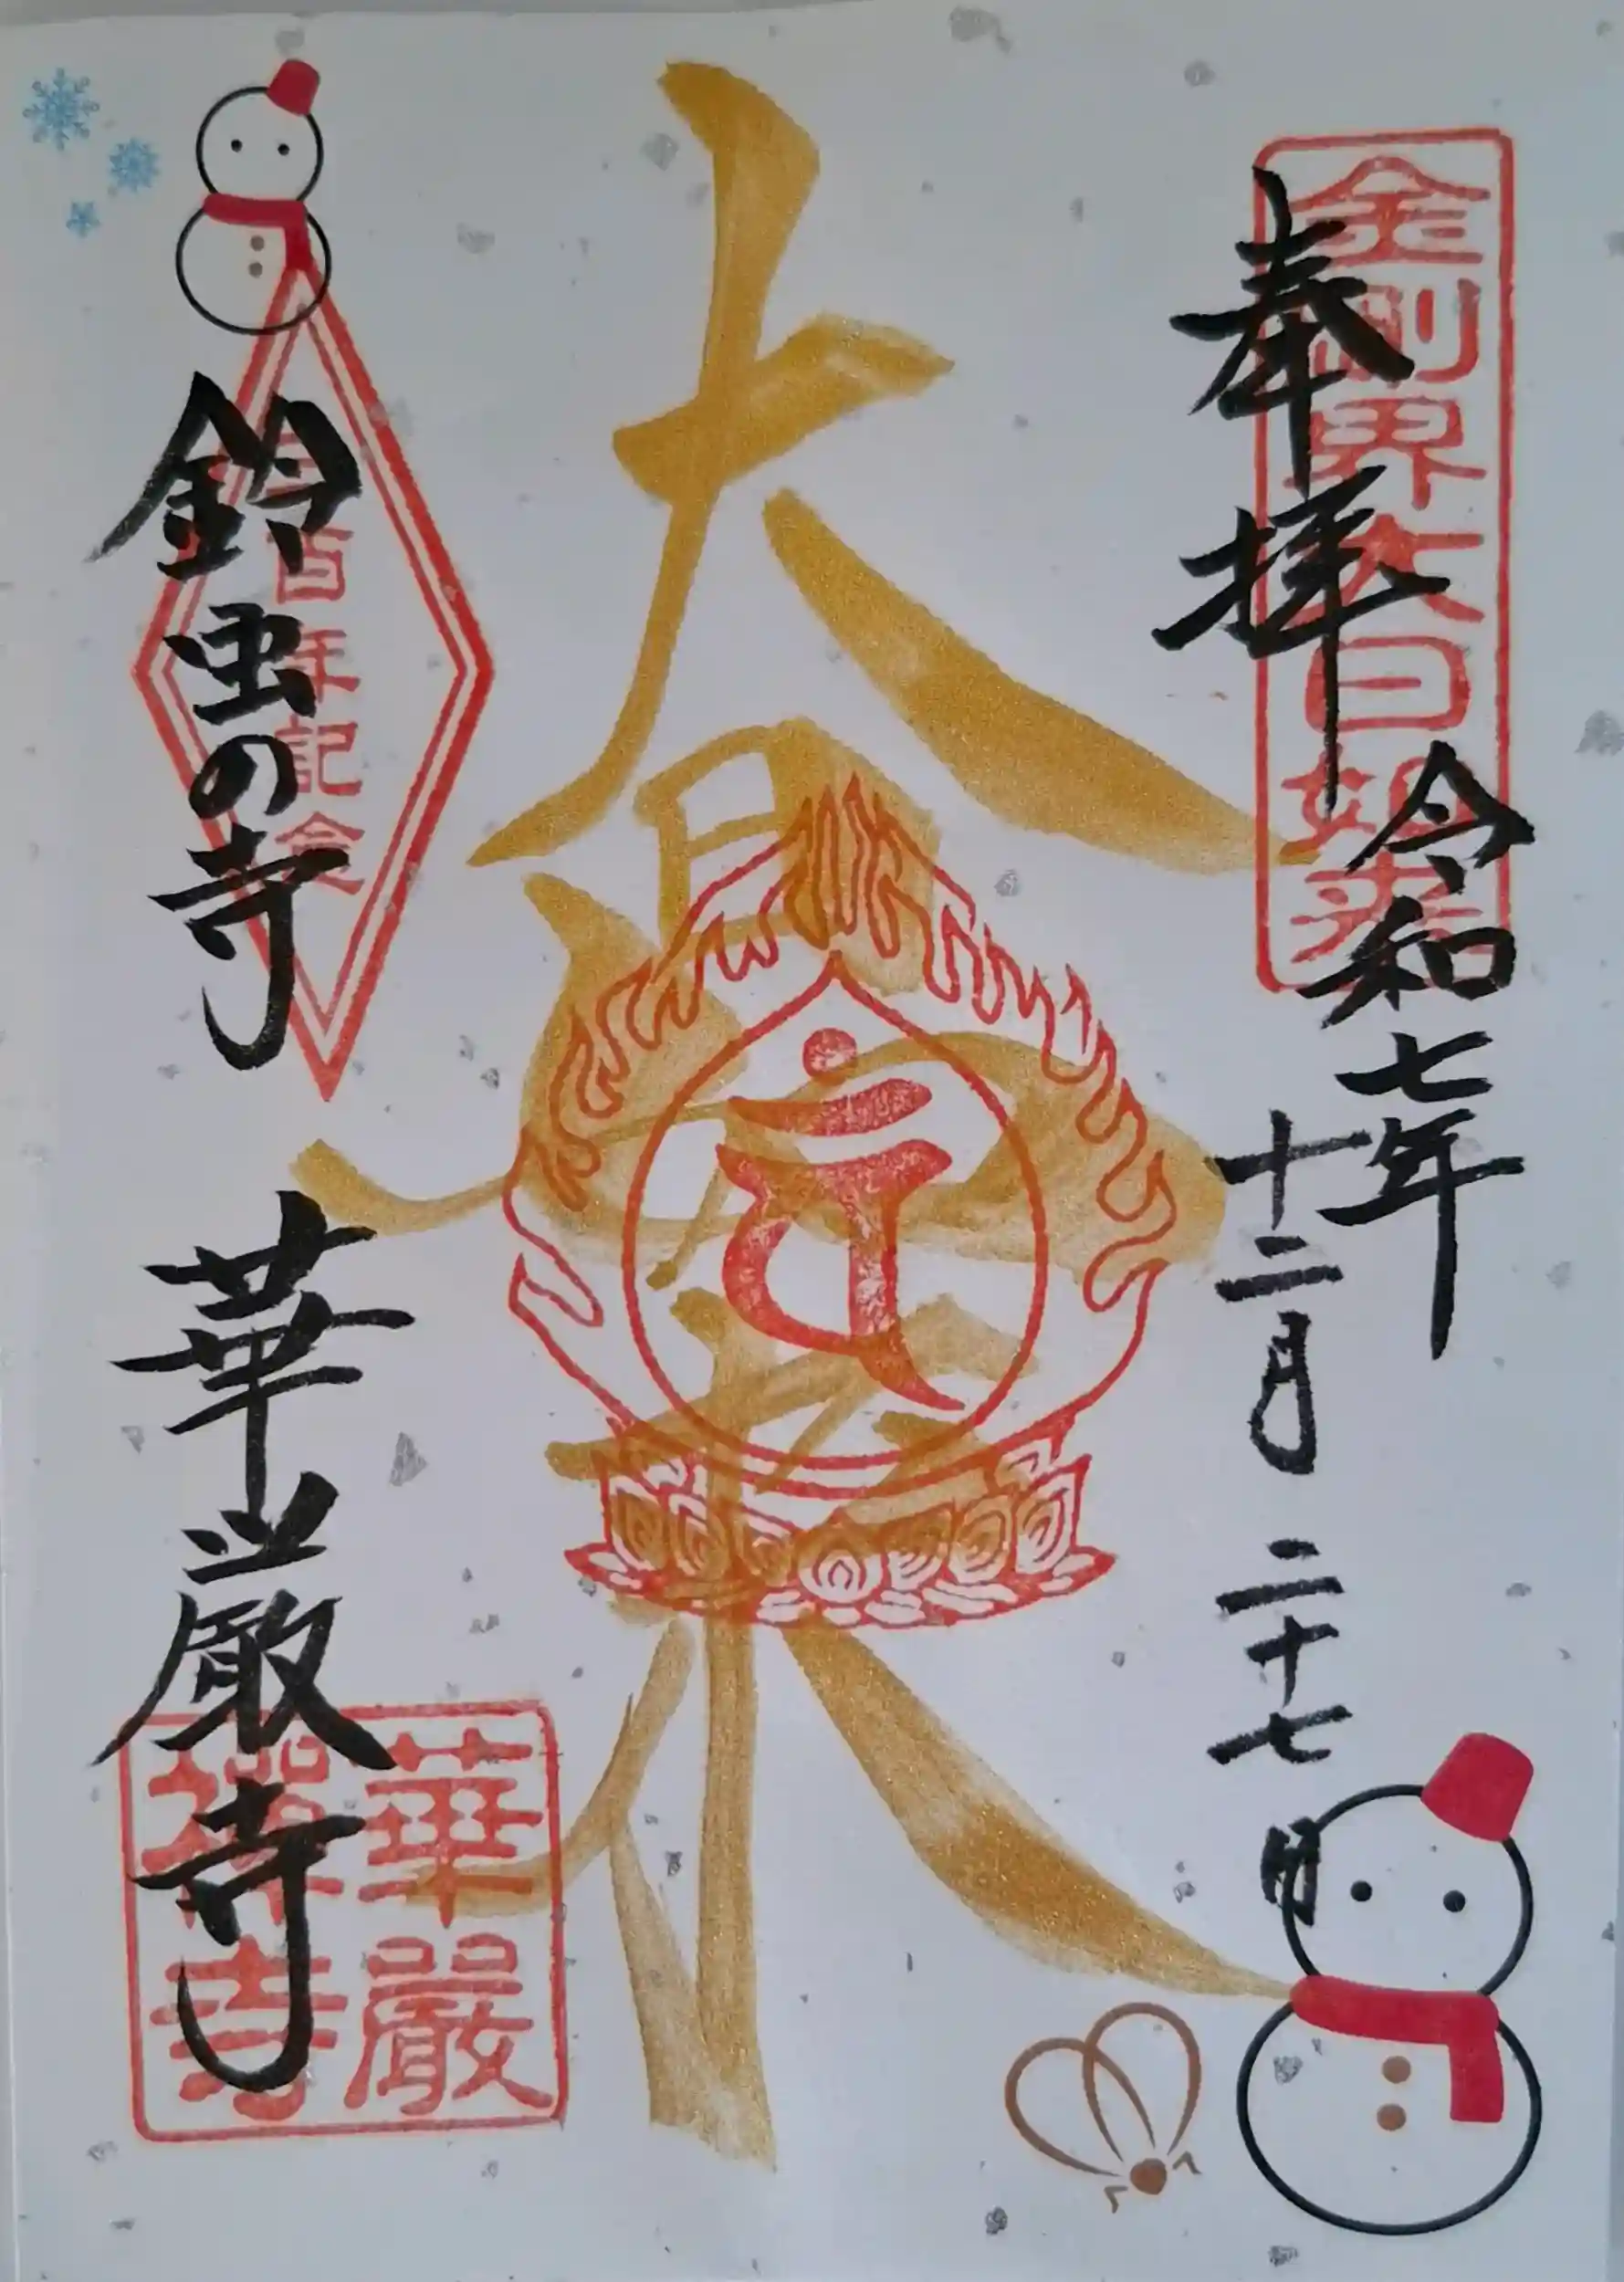 金剛界大日如来
奉拝
令和七年
十二月二十七日
大日如来
三百年記念
鈴虫の寺
華厳寺
華嚴禪寺